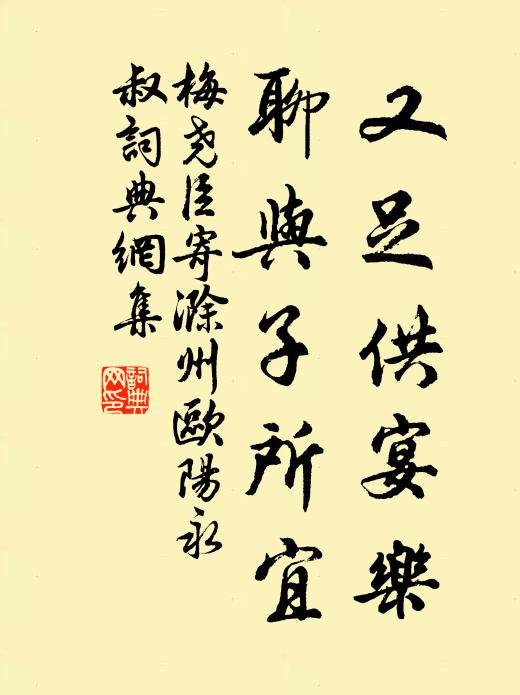 又足供宴樂
聊與子所宜
梅尧臣寄滁州歐陽永
叔詞典網集
詞典
网印